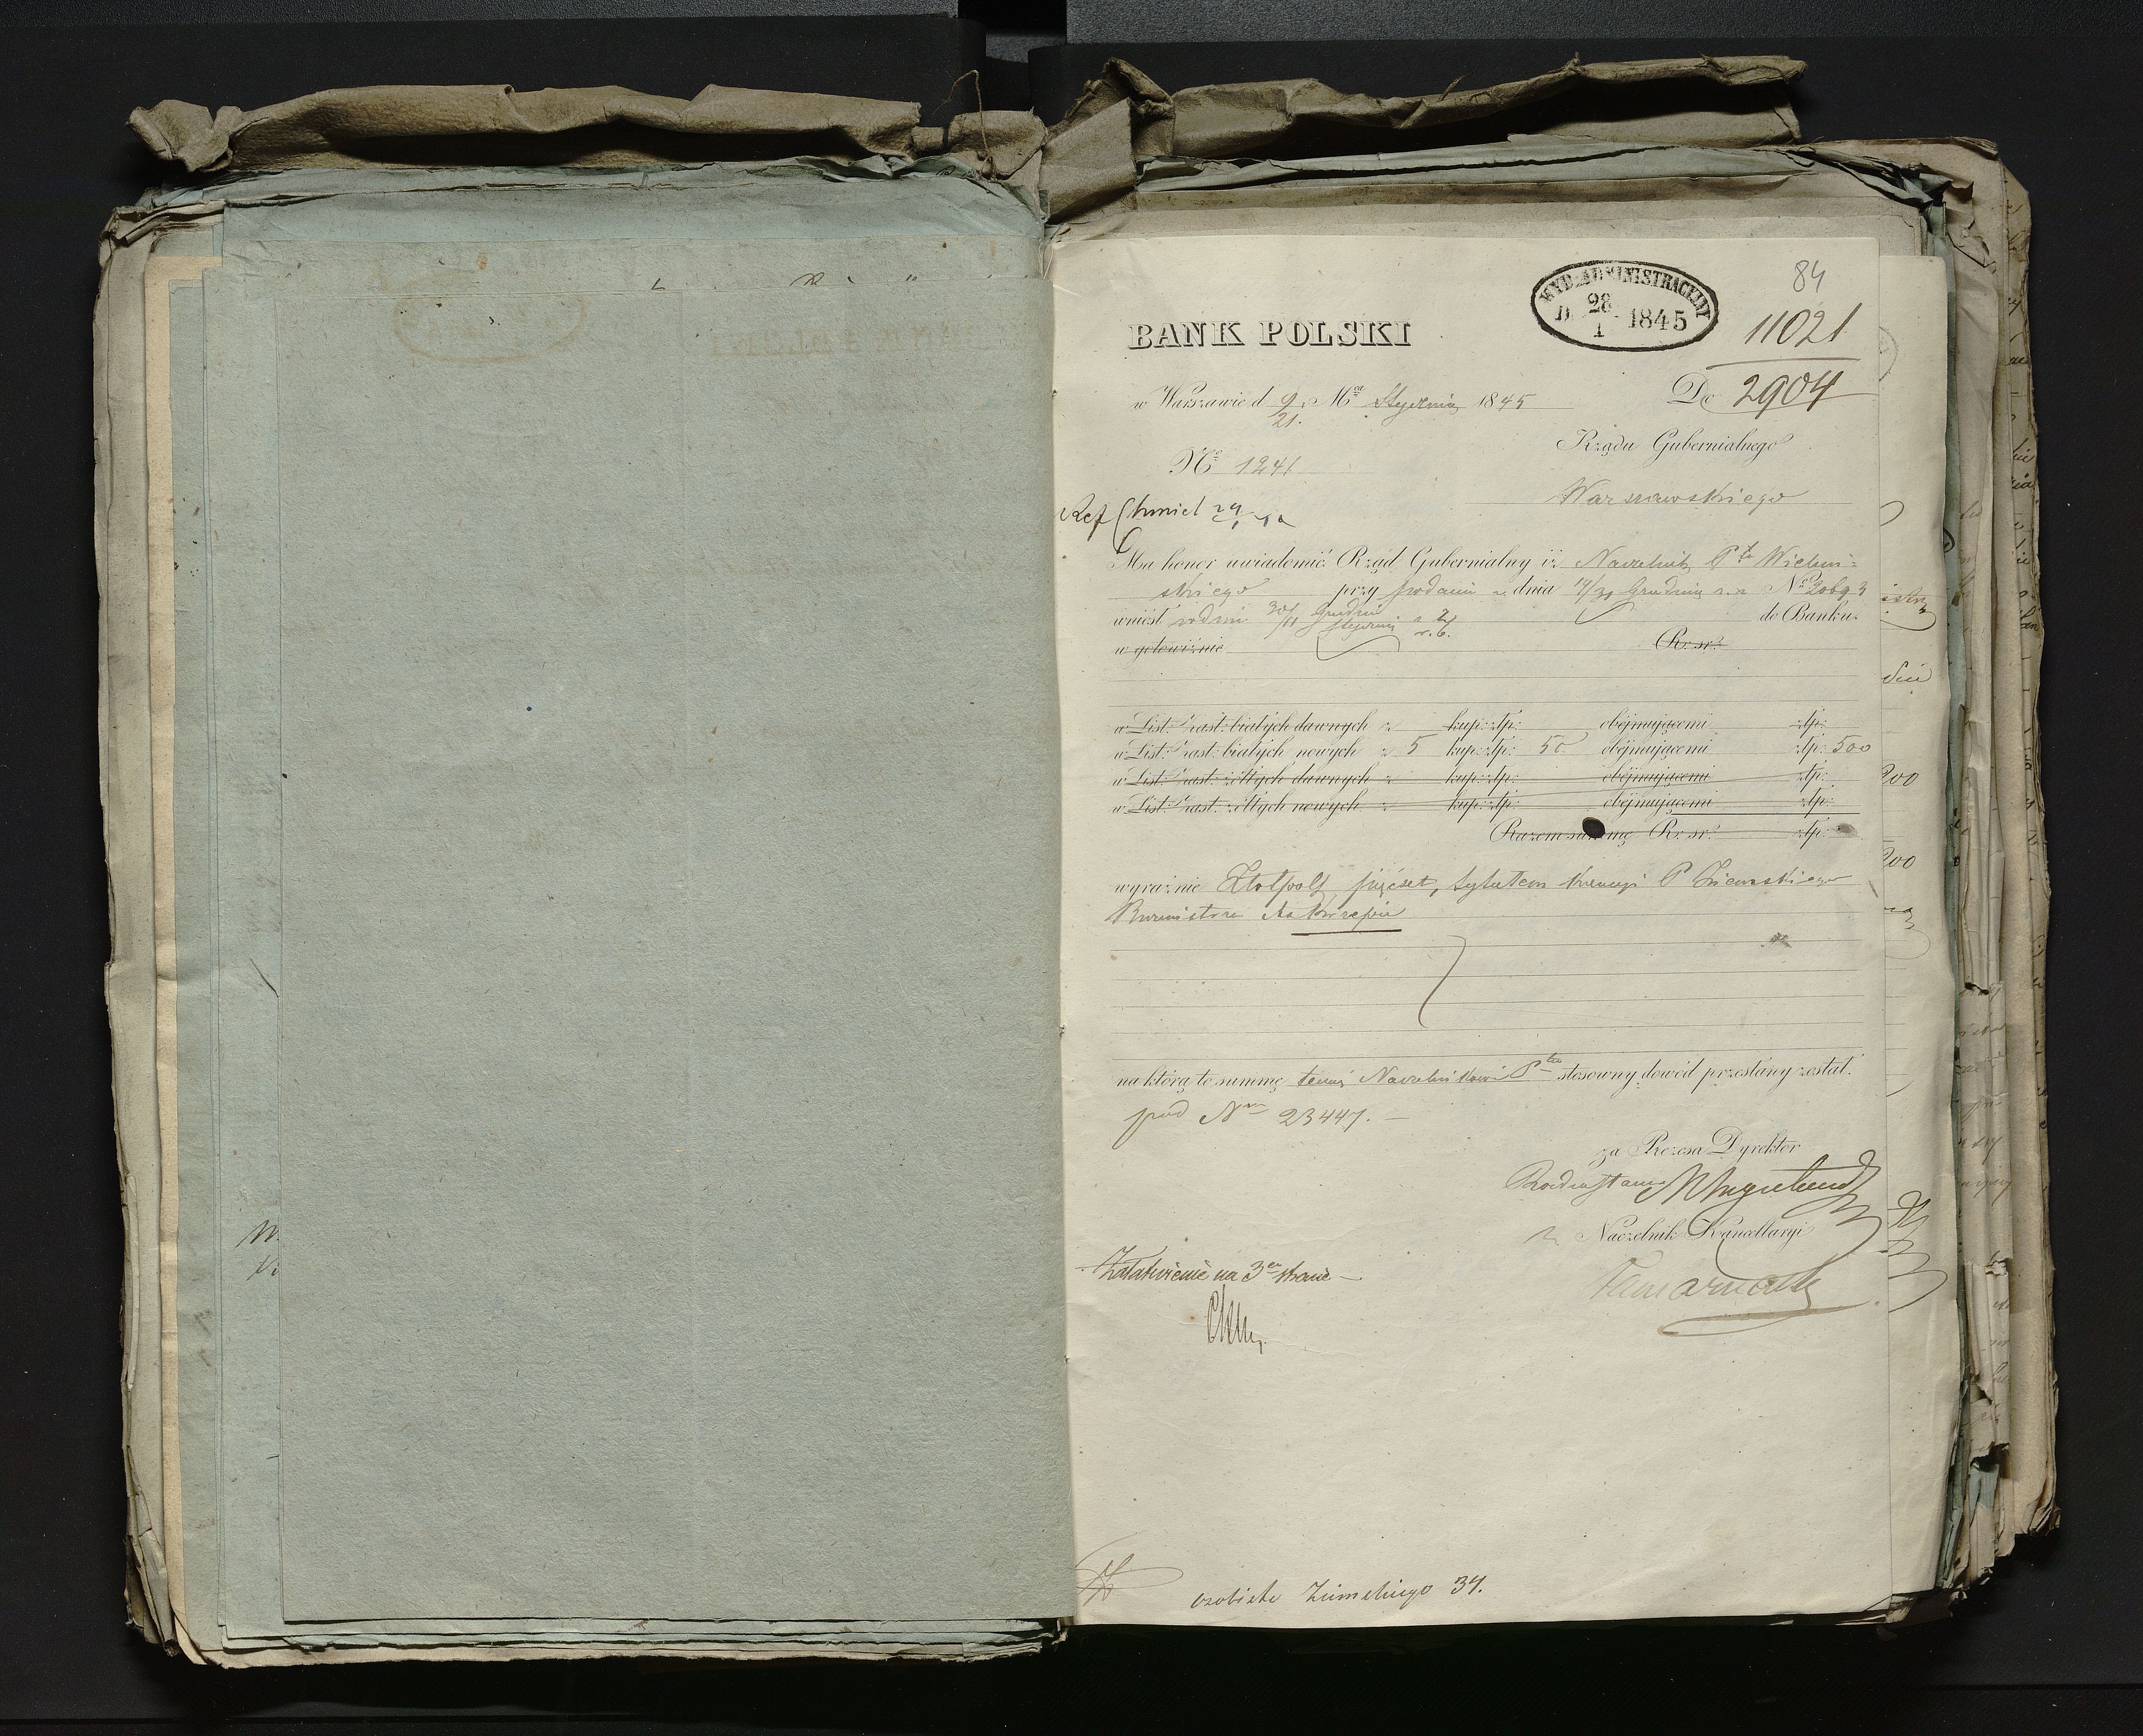 84
WYD. ADMINISTRACYJNY
D. 28/1 1845
11021
BANK POLSKI
w Warszawie d 9/21. Mca Stycznia 1845
Do 2904
Rządu Gubernialnego
No 1241
Warszawskiego
Ref Chmiel 29/1
Ma honor uwiadomić Rząd Gubernialny iż Naczelnik Ptu Wieluń-
skiego przy podaniu z dnia 14/30 Grudnia r. z. No 20693
wniósł w dniu 30/11 Grudnia Stycznia r. z. r. b. do Banku.
w gotowiźnie Rr. sr.
w List: zast: białych dawnych z kup: złp: obéjmującemi złp:
w List: zast: białych nowych z 5 kup: złp: 50 obéjmującemi złp: 500
w List: zast: żółtych dawnych z kup: złp: obéjmującemi złp:
w List: zast: żółtych nowych z kup: złp: obéjmującemi złp:
Razem summę Rr. sr. złp:
wyraźnie Złotpols pięćset, tytułem kaucyi P
Burmistrza
na którą to summę temuż Naczelnikowi Ptu stosowny dowód przesłany został.
pod Nm 23447.
za Prezesa Dyrektor
Radca Stanu
Naczelnik Kancellaryi
Załatwienie na 3ej stronie
osobiste 34.